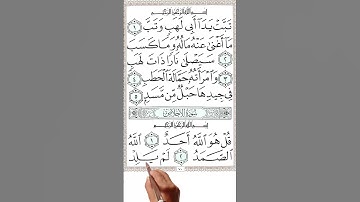 بِسْمِ اللَّهِ الرَّحْمَٰنِ الرَّحِيمِ
تَبَّتْ يَدَا أَبِي لَهَبٍ وَتَبَّ ۝١
مَا أَغْنَىٰ عَنْهُ مَالُهُ وَمَا كَسَبَ
۝٢ سَيَصْلَىٰ نَارًا ذَاتَ لَهَبٍ
۝٣ وَامْرَأَتُهُ حَمَّالَةَ الْحَطَبِ ۝٤
فِي جِيدِهَا حَبْلٌ مِّن مَّسَدٍ ۝٥
سُورَةُ الْإِخْلَاصِ
بِسْمِ اللَّهِ الرَّحْمَٰنِ الرَّحِيمِ
قُلْ هُوَ اللَّهُ أَحَدٌ ۝١ اللَّهُ
الصَّمَدُ ۝٢ لَمْ يَلِدْ